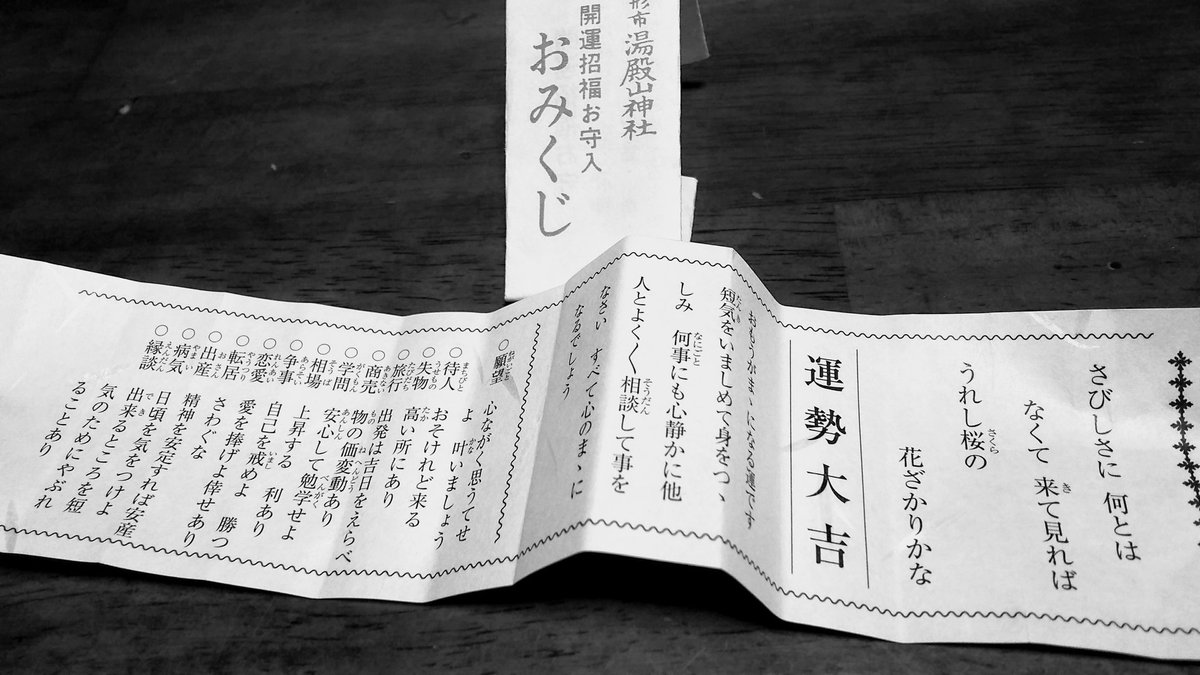 形市湯殿山神社
開運招福お守入
おみくじ
さびしさに 何とは
なくて 来て見れば
うれし桜の
花ざかりかな
運勢大吉
おもうがまゝになる運です
短気をいましめて身をつゝ
しみ 何事にも心静かに他
人とよくく相談して事を
なさい すべて心のまゝに
なるでしょう
○願望 心ながく思うてせ
よ 叶いましょう
○待人 おそけれど来る
○失物 高い所にあり
○旅行 出発は吉日をえらべ
○商売 物の価変動あり
○学問 安心して勉学せよ
○相場 上昇する 利あり
○争事 自己を戒めよ 勝つ
○恋愛 愛を捧げよ倖せあり
○転居 さわぐな
○出産 精神を安定すれば安産
○病気 日頃を気をつけよ
出来るところを短
○縁談 気のためにやぶれ
ることあり